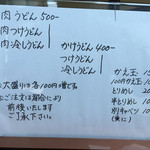 肉うどん 500-
肉つけうどん
肉冷しうどん
かけうどん 400-
つけうどん
冷しうどん
大盛りは各100円増です
ご注文は都合により
前後いたします
ご了承下さい。
かえ玉
100円かえ玉
とりめし
半とりめし
刻キャベツ